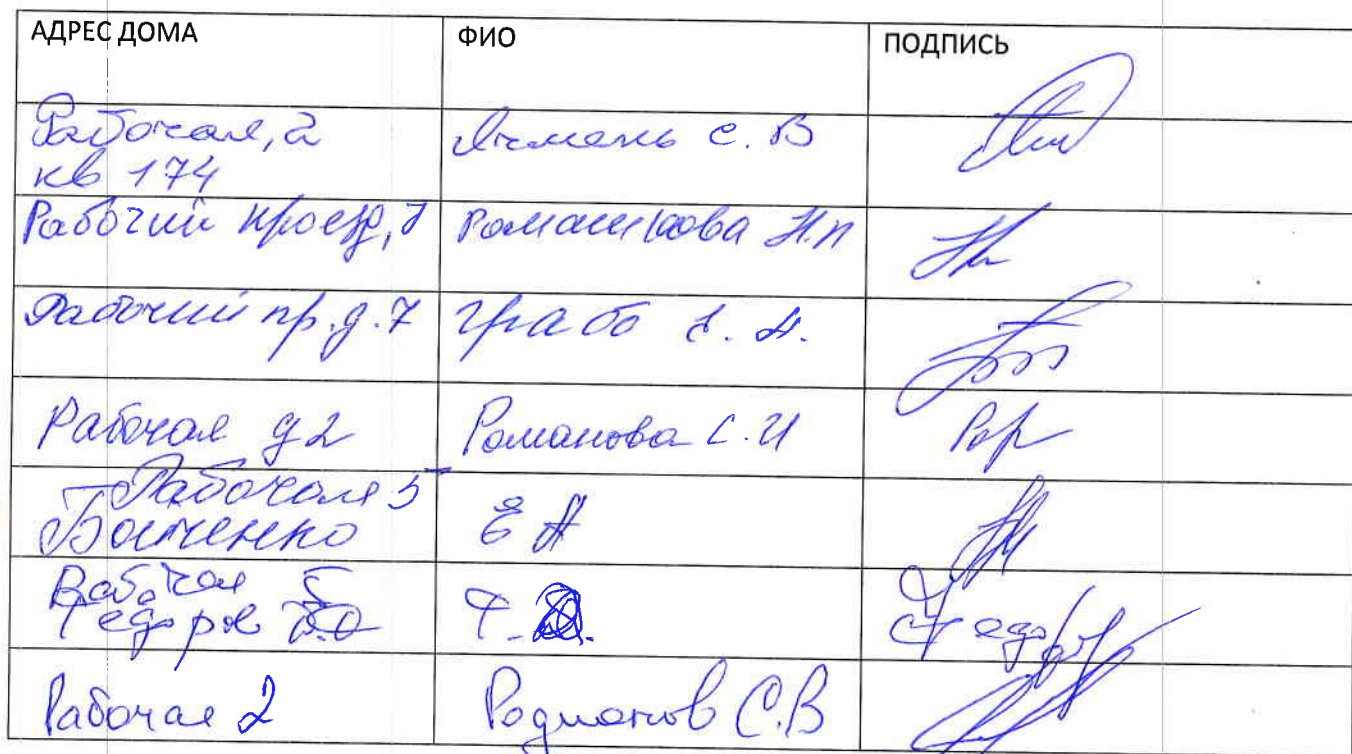 АДРЕС ДОМА ФИО ПОДПИСЬ
Рабочая, 2 Ячмень С. В
кв 174
Рабочий проезд, Ромашкова Н.П
Рабочий пр. д. 7 Грабо
Рабочая д 2 Романова С. И
Рабочая 5
Батченко Е А
Рабочая 5
Федоров Федоров
Рабочая 2 Родионов С.В